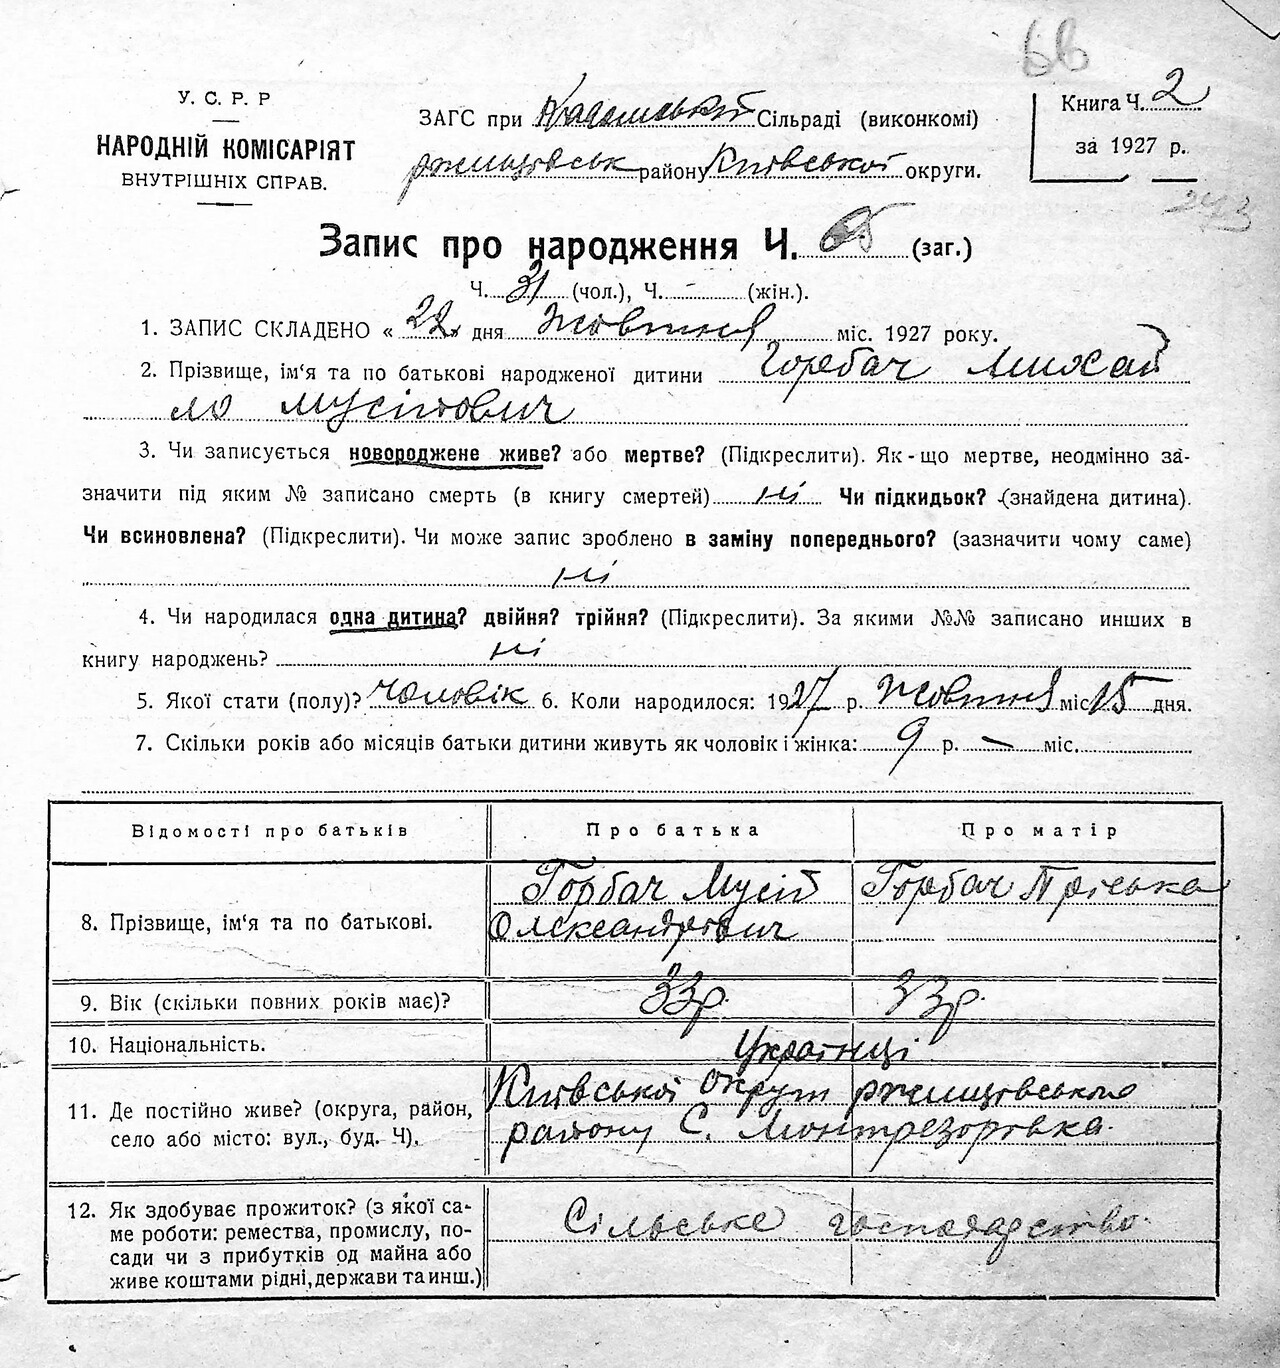 бв
У. С. Р. Р
НАРОДНІЙ КОМІСАРІЯТ
ВНУТРІШНІХ СПРАВ.
ЗАГС при Сільраді (виконкомі)
ржищівськ району Київської округи.
Книга Ч. 2
за 1927 р.
243
Запис про народження Ч. 65 (заг.)
Ч. 31 (чол.), Ч. - (жін.).
1. ЗАПИС СКЛАДЕНО « 22 » дня жовтня міс. 1927 року.
2. Прізвище, ім'я та по батькові народженої дитини Горбач Михай
ло Мусійович
3. Чи записується новороджене живе? або мертве? (Підкреслити). Як-що мертве, неодмінно за-
значити під яким № записано смерть (в книгу смертей) ні Чи підкидьок? (знайдена дитина).
Чи всиновлена? (Підкреслити). Чи може запис зроблено в заміну попереднього? (зазначити чому саме)
ні
4. Чи народилася одна дитина? двійня? трійня? (Підкреслити). За якими №№ записано инших в
книгу народжень? ні
5. Якої стати (полу)? чоловік 6. Коли народилося: 1927 р. жовтня міс 15 дня.
7. Скільки років або місяців батьки дитини живуть як чоловік і жінка: 9 р. – міс.
Відомості про батьків Про батька Про матір
8. Прізвище, ім'я та по батькові. Горбач Мусій Олександрович Горбач Пріська
9. Вік (скільки повних років має)? 33р. 33р.
10. Національність. Українці
11. Де постійно живе? (округа, район, Київської округи ржищівського
село або місто: вул., буд. Ч). району С. Монтрезорівка.
12. Як здобуває прожиток? (з якої са- Сільське господарство.
ме роботи: ремества, промислу, по-
сади чи з прибутків од майна або
живе коштами рідні, держави та инш.)